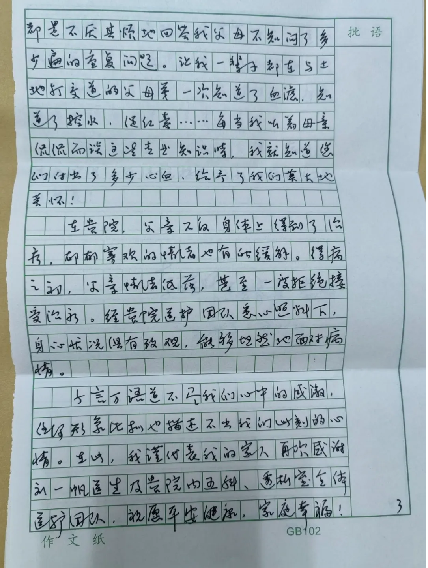 批语
却是不厌其烦地回答我父母不知问了多
少遍的重复问题。让我一辈子都在与土
地打交道的父母第一次知道了血液，知
道了控水，促红素……每当我听着母亲
侃侃而谈这些专业知识时，我就知道您
们付出了多少心血，给予了我们莫大地
关怀！
在贵院，父亲不仅身体上得到了治
疗，郁郁寡欢的情绪也有所缓解。得病
之初，父亲情绪低落，甚至一度拒绝接
受治疗。经贵院医护团队悉心照料下，
身心状况俱有改观，能够坦然地面对病
情。
千言万语道不尽我们心中的感激，
任何形象比拟也描述不出我们此刻的心
情。在此，我谨代表我的家人再次感谢
刘一帆医生及贵院内五科、透析室全体
医护团队，祝愿平安健康，家庭幸福！
3
作文纸 GB102